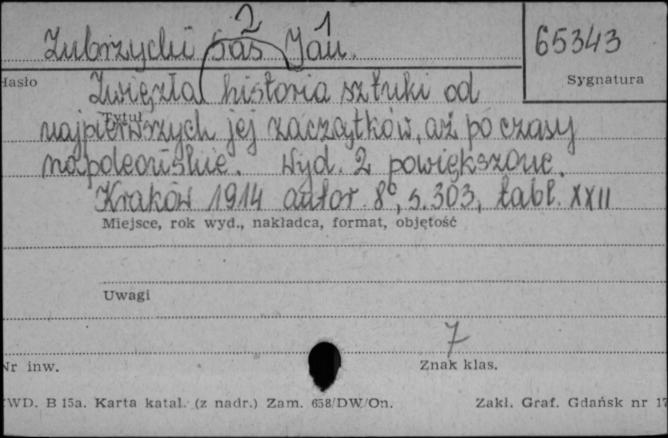 2 1
Zubrzycki Sas Jan.
65343
Hasło
Sygnatura
Zwięzła historia sztuki od
Tytuł
najpierwszych jej zaczątków, aż po czasy
napoleońskie. Wyd. 2 powiększone.
Kraków 1914 autor 8°, s. 303, tabl. XXII
Miejsce, rok wyd., nakładca, format, objętość
Uwagi
7
Nr inw.
Znak klas.
WD. B 15a. Karta katal. (z nadr.) Zam. 658/DW/On.
Zakł. Graf. Gdańsk nr 17